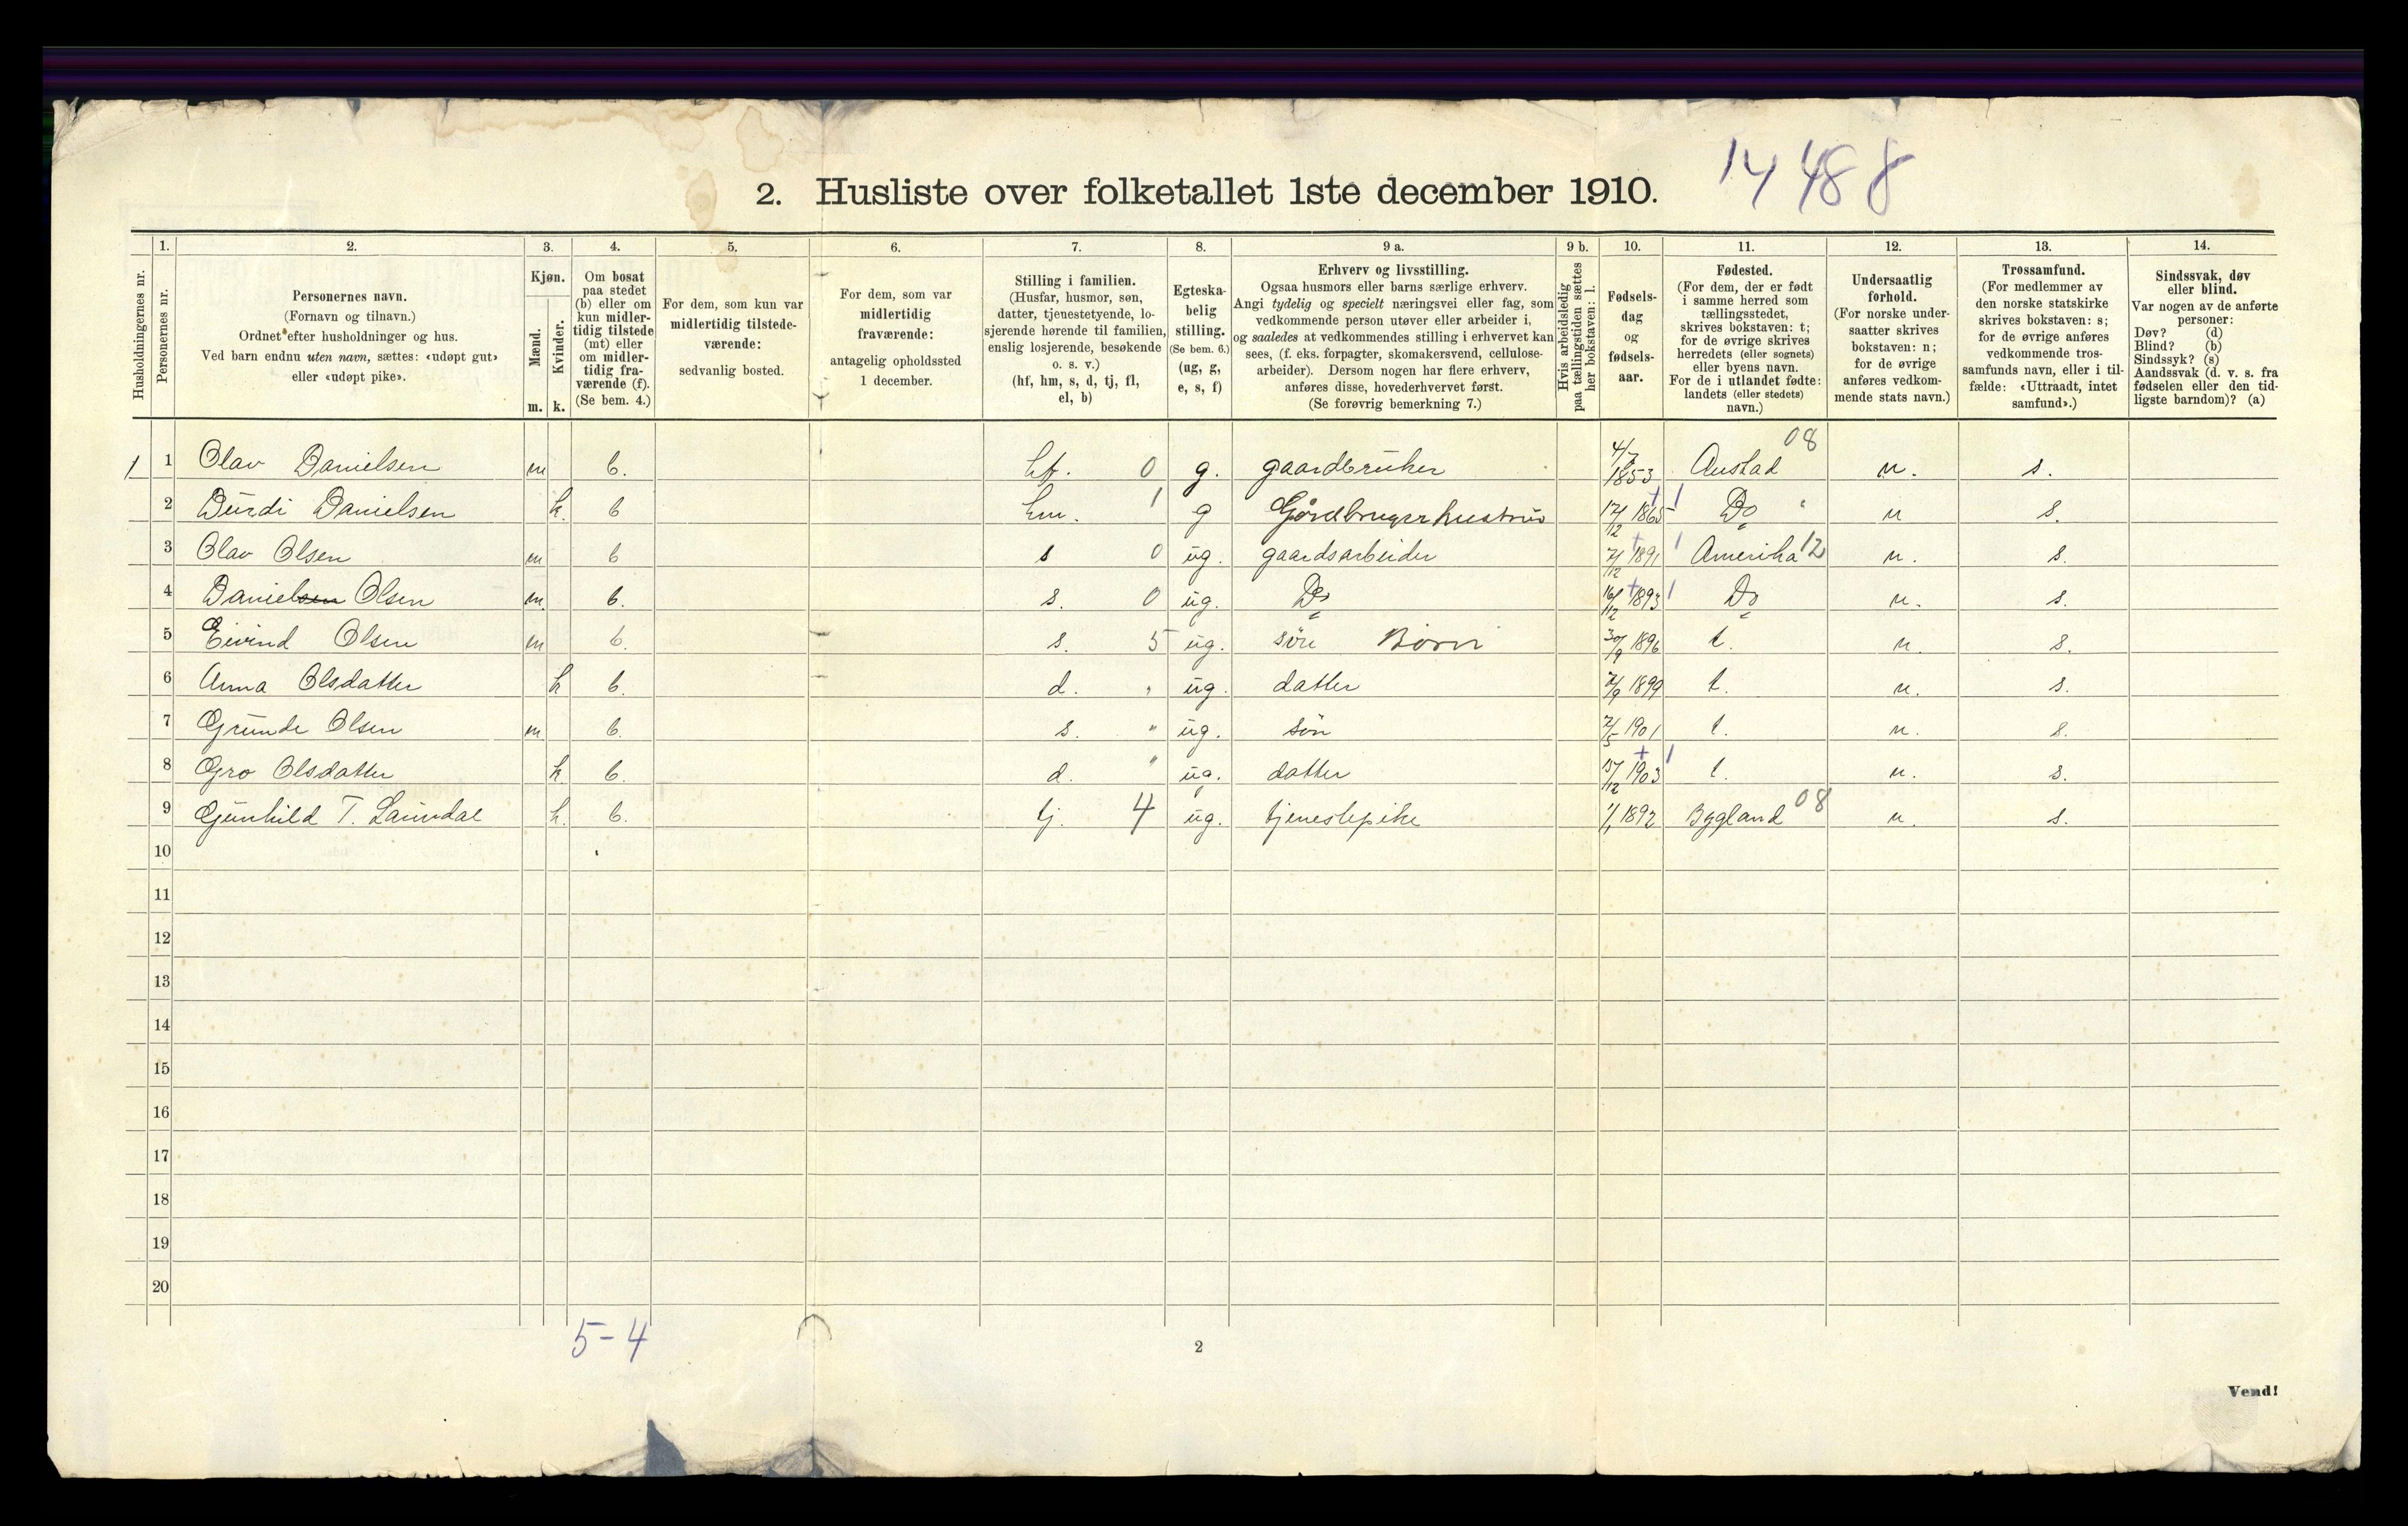 14 488
2. Husliste over folketallet 1ste december 1910.
Husholdningernes nr.
1.
Personernes nr.
2.
Personernes navn.
(Fornavn og tilnavn.)
Ordnet efter husholdninger og hus.
Ved barn endnu uten navn, sættes: «udøpt gut»
eller «udøpt pike».
3.
Kjøn.
Mænd.
Kvinder.
m. k.
4.
Om bosat
paa stedet
(b) eller om
kun midler-
tidig tilstede
(mt) eller
om midler-
tidig fra-
værende (f).
(Se bem. 4.)
5.
For dem, som kun var
midlertidig tilstede-
værende:
sedvanlig bosted.
6.
For dem, som var
midlertidig
fraværende:
antagelig opholdssted
1 december.
7.
Stilling i familien.
(Husfar, husmor, søn,
datter, tjenestetyende, lo-
sjerende hørende til familien,
enslig losjerende, besøkende
o. s. v.)
(hf, hm, s, d, tj, fl,
el, b)
8.
Egteska-
belig
stilling.
(Se bem. 6.)
(ug, g,
e, s, f)
9 a.
Erhverv og livsstilling.
Ogsaa husmors eller barns særlige erhverv.
Angi tydelig og specielt næringsvei eller fag, som
vedkommende person utøver eller arbeider i,
og saaledes at vedkommendes stilling i erhvervet kan
sees, (f. eks. forpagter, skomakersvend, cellulose-
arbeider). Dersom nogen har flere erhverv,
anføres disse, hovederhvervet først.
(Se forøvrig bemerkning 7.)
9 b.
Hvis arbeidsledig
paa tællingstiden sættes
her bokstaven: l.
10.
Fødsels-
dag
og
fødsels-
aar.
11.
Fødested.
(For dem, der er født
i samme herred som
tællingsstedet,
skrives bokstaven: t;
for de øvrige skrives
herredets (eller sognets)
eller byens navn.
For de i utlandet fødte:
landets (eller stedets)
navn.)
12.
Undersaatlig
forhold.
(For norske under-
saatter skrives
bokstaven: n;
for de øvrige
anføres vedkom-
mende stats navn.)
13.
Trossamfund.
(For medlemmer av
den norske statskirke
skrives bokstaven: s;
for de øvrige anføres
vedkommende tros-
samfunds navn, eller i til-
fælde: «Uttraadt, intet
samfund».)
14.
Sindssvak, døv
eller blind.
Var nogen av de anførte
personer:
Døv? (d)
Blind? (b)
Sindssyk? (s)
Aandssvak (d. v. s. fra
fødselen eller den tid-
ligste barndom)? (a)
1 1 Olav Danielsen m b. hf. 0 g. gaardbruker 4/7 1853 Austad 08 n. s.
2 Durdi Danielsen k. b hm. 1 g Gårdbrugerhustru 17/12 1865 + 1 Do n s.
3 Olav Olsen m b s 0 ug. gaardsarbeider 1891 + 1 Amerika 12 n. s.
4 Danielsen Olsen m. b. s. 0 ug. Do 16/12 + 1893 1 Do n. s.
5 Eivind Olsen m b. s. 5 ug. søn Børn 30/9 1896 t. n. s.
6 Anna Olsdatter k b. d. " ug. datter 1899 t. n. s.
7 Grunde Olsen m. b. s. " ug. søn 2/5 1901 t. n. s.
8 Gro Olsdatter k. b. d. " ug. datter 15/12 1903 + 1 t. n. s.
9 Gunhild T. Lauvdal k. b. tj. 4 ug. tjenestepike 1/1 1892 Bygland 08 n. s.
10
11
12
13
14
15
16
17
18
19
20
5-4
2
Vend!